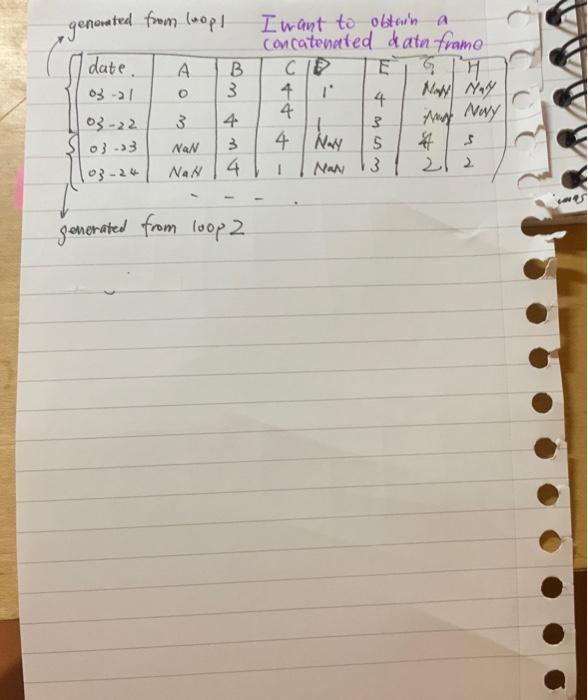 generated from loop1
I want to obtain a
concatenated data frame
date. A B C D E G H
03-21 0 3 4 1 4 NaN NaN
03-22 3 4 4 1 3 NaN NaN
03-23 NaN 3 4 NaN 5 4 5
03-24 NaN 4 1 NaN 3 2 2
- - - .
generated from loop2